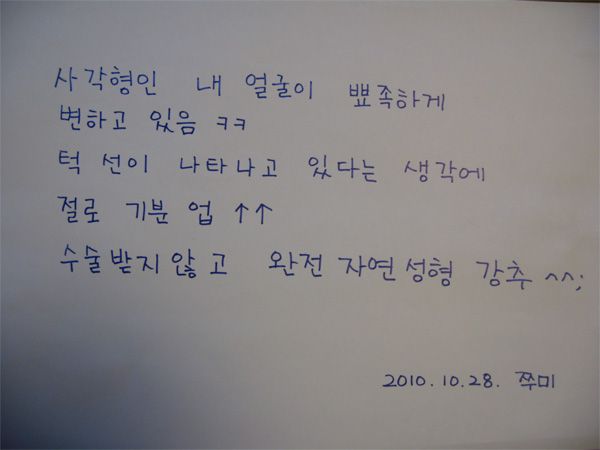 사각형인 내 얼굴이 뾰족하게
변하고 있음 ㅋㅋ
턱 선이 나타나고 있다는 생각에
절로 기분 업 ↑↑
수술받지않고 완전 자연성형 강추 ^^;
2010.10.28. 쭈미